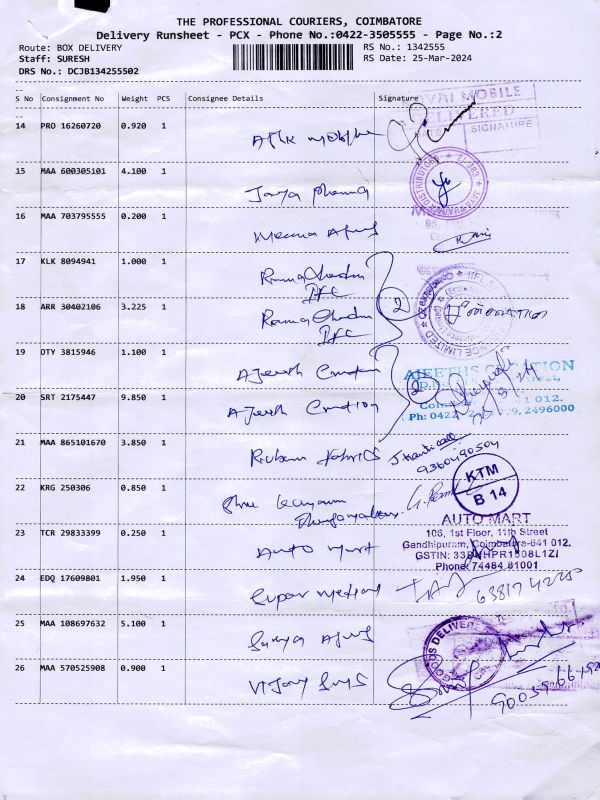 THE PROFESSIONAL COURIERS, COIMBATORE
Delivery Runsheet - PCX - Phone No.:0422-3505555 - Page No.:2
Route: BOX DELIVERY
RS No.: 1342555
Staff: SURESH
RS Date: 25-Mar-2024
DRS No.: DCJB134255502
S No Consignment No Weight PCS Consignee Details Signature
14 PRO 16260720 0.920 1
15 MAA 600305101 4.100 1 Jaya Pharma
16 MAA 703795555 0.200 1 Meena
17 KLK 8094941 1.000 1 Rama Chandra
18 ARR 30402106 3.225 1 Rama Chandra
2
19 OTY 3815946 1.100 1 Ajeeth Creation
AJEETHS CREATION
20 SRT 2175447 9.850 1 Ajeeth Creation
2
2496000
21 MAA 865101670 3.850 1 Rubam Fabrics
9360490504
22 KRG 250306 0.850 1 Shree
KTM
B 14
23 TCR 29833399 0.250 1 Auto Mart
AUTO MART
106, 1st Floor, 11th Street
Gandhipuram, Coimbatore-641 012.
Phone: 74484 81001
24 EDQ 17609801 1.950 1 Super Medical
25 MAA 108697632 5.100 1 Surya
GOODS DELIVERED
26 MAA 570525908 0.900 1 Vijay